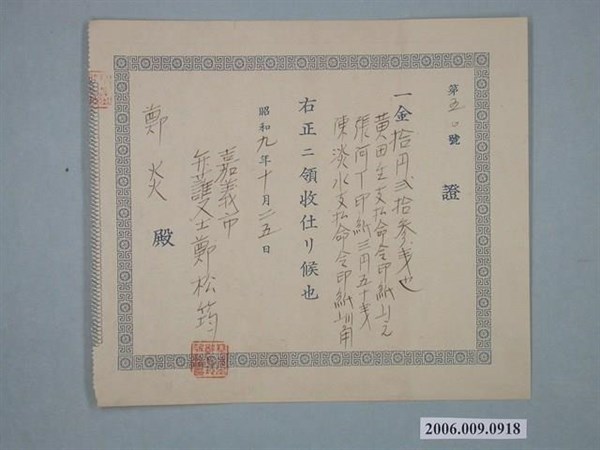 第五〇號
證
一金拾円弐拾参銭也
黄田生支払命令印紙
張阿丁印紙三円五十銭
陳淡水支払命令印紙
右正ニ領收仕リ候也
昭和九年十月二五日
嘉義市
弁護士鄭松筠
鄭火殿
2006.009.0918